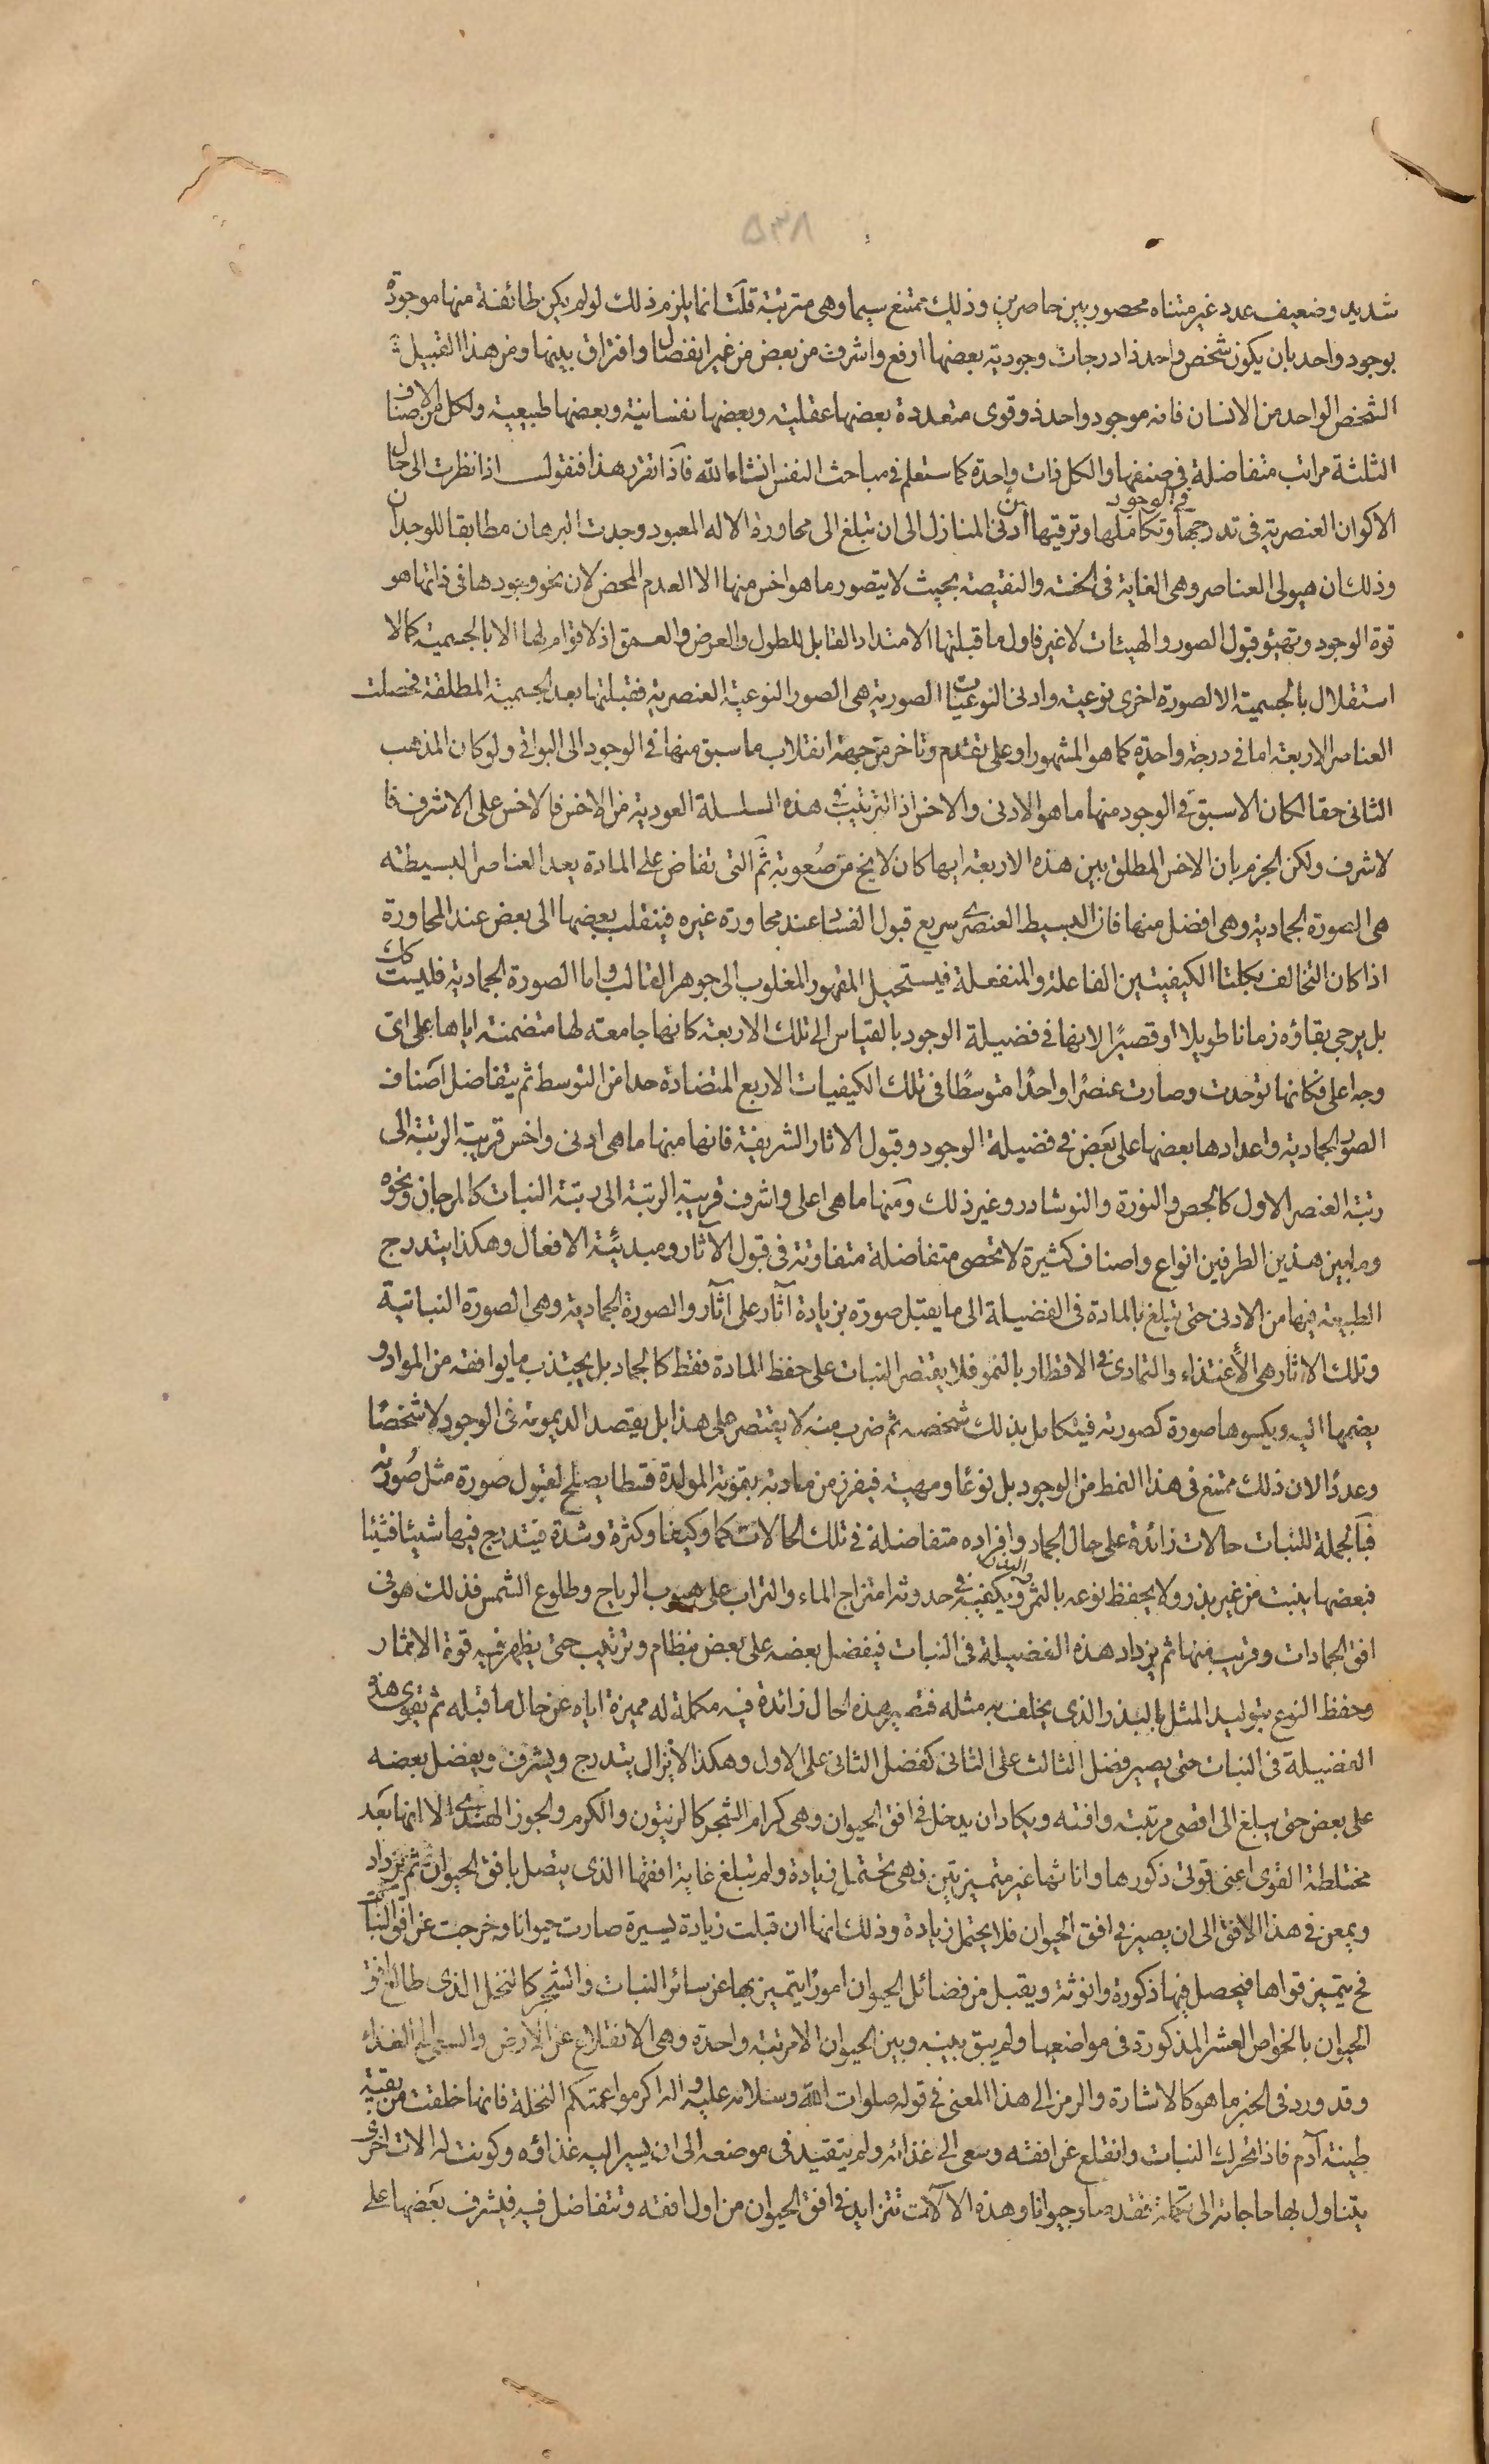 ٥٣٨
شديد وضعيف عدد غير متناه محصور بين حاصرين وذلك ممتنع سيما وهى مترتبة قلت انما يلزم ذلك لو لم يكن طائفة منها موجودة
بوجود واحد بان يكون شخص واحد ذا درجات وجودية بعضها ارفع واشرف من بعض من غير انفصال وافتراق بينها ومن هذا القبيل
الشخص الواحد من الانسان فانه موجود واحد ذو قوى متعددة بعضها عقلية وبعضها نفسانية وبعضها طبيعية ولكل من الاصناف
الثلثة مراتب متفاضلة فى صنفها والكل ذات واحدة كما ستعلم فى مباحث النفس انشاء الله فاذا تقرر هذا فنقول اذا نظرت الى حال
الاكوان العنصرية فى تدرجها فى الوجود وتكاملها وترقيها من ادنى المنازل الى ان تبلغ الى مجاورة الاله المعبود وجدت البرهان مطابقا للوجدان
وذلك ان هيولى العناصر وهى الغاية فى الخسة والنقيصة بحيث لا يتصور ما هو اخس منها الا العدم المحض لان نحو وجودها فى ذاتها هو
قوة الوجود وتهيؤ قبول الصور والهيئات لا غير فاول ما قبلتها الامتداد القابل للطول والعرض والعمق اذ لا قوام لها الا بالجسمية كما لا
استقلال بالجسمية الا لصورة اخرى نوعية وادنى النوعيات الصورية هى الصور النوعية العنصرية فقبلتها بعد الجسمية المطلقة فحصلت
العناصر الاربعة اما فى درجة واحدة كما هو المشهور او على تقدم وتاخر من جهة انقلاب ما سبق منها فى الوجود الى البواقى ولو كان المذهب
الثانى حقا لكان الاسبق فى الوجود منها ما هو الادنى والاخس اذ الترتيب فى هذه السلسلة العودية من الاخس فالاخس على الاشرف فا
لاشرف ولكن الجزم بان الاخس المطلق بين هذه الاربعة ايها كان لا يخ من صعوبة ثم التى تفاض على المادة بعد العناصر البسيطة
هى الصورة الجمادية وهى افضل منها فان البسيط العنصرى سريع قبول الفساد عند مجاورة غيره فينقلب بعضها الى بعض عند المجاورة
اذا كان التخالف بكلتا الكيفيتين الفاعلة والمنفعلة فيستحيل المقهور المغلوب الى جوهر الغالب واما الصورة الجمادية فليست كك
بل يرجى بقاؤه زمانا طويلا او قصيرًا لانها فى فضيلة الوجود بالقياس الى تلك الاربعة كانها جامعة لها متضمنة اياها على اتى
وجه اعلى فكانها توحدت وصارت عنصرًا واحدًا متوسطًا فى تلك الكيفيات الاربع المتضادة حدا من التوسط ثم يتفاضل اصناف
الصور الجمادية واعدادها بعضها على بعض فى فضيلة الوجود وقبول الاثار الشريفة فانها منها ما هى ادنى واخس قريبة الرتبة الى
رتبة العنصر الاول كالجص والنورة والنوشادر وغير ذلك ومنها ما هى اعلى واشرف قريبة الرتبة الى رتبة النبات كالمرجان ونحوه
وما بين هذين الطرفين انواع واصناف كثيرة لا تحصى متفاضلة متفاوتة فى قبول الآثار ومبدئية الافعال وهكذا يتدرج
الطبيعة فيها من الادنى حتى تبلغ بالمادة فى الفضيلة الى ما يقبل صورة بزيادة آثار على آثار والصورة الجمادية وهى الصورة النباتية
وتلك الاثار هى الأغتذاء والتمادى فى الاقطار بالنمو فلا يقتصر النبات على حفظ المادة فقط كالجماد بل يجتذب ما يوافقه من المواد و
يضمها اليه ويكسوها صورة كصورته فيتكامل بذلك شخصه ثم ضرب منه لا يقتصر على هذا بل يقصد الديمومة فى الوجود لا شخصًا
وعددًا لان ذلك ممتنع فى هذا النمط من الوجود بل نوعًا ومهية فيفرز من مادته بقوته المولدة قسطا يصلح لقبول صورة مثل صورته
فبالجملة للنبات حالات زائدة على حال الجماد وافراده متفاضلة فى تلك الحالات كما وكيفا وكثرة وشدة فيتدرج فيها شيئا فشيئا
فبعضها ينبت من غير بذر ولا يحفظ نوعه بالثمر والبذر ويكفيه فى حدوثه امتزاج الماء والتراب على هبوب الرياح وطلوع الشمس فذلك هو فى
افق الجمادات وقريب منها ثم يزداد هذه الفضيلة فى النبات فيفضل بعضه على بعض بنظام وترتيب حتى يظهر فيه قوة الاثمار
وحفظ النوع بتوليد المثل بالبذر الذى يخلف به مثله فتصير هذه الحال زائدة فيه مكملة له مميزة اياه عن حال ما قبله ثم تقوى هذه
الفضيلة فى النبات حتى يصير فضل الثالث على الثانى كفضل الثانى على الاول وهكذا لا يزال يتدرج ويشرف ويفضل بعضه
على بعض حتى يبلغ الى اقصى مرتبته وافقه ويكاد ان يدخل فى افق الحيوان وهى كرام الشجر كالزيتون والكرم والجوز الهندى الا انها بعد
مختلطة القوى اعنى قوتى ذكورها واناثها غير متميزتين فهى تحتمل زيادة ولم تبلغ غاية افقها الذى يتصل بافق الحيوان ثم يزداد
ويمعن فى هذا الافق الى ان يصير فى افق الحيوان فلا يحتمل زيادة وذلك انها ان قبلت زيادة يسيرة صارت حيوانا وخرجت عن افق النبات
فح يتميز قواها فيحصل فيها ذكورة وانوثة ويقبل من فضائل الحيوان امورًا يتميز بها عن سائر النبات والشجر كالنخل الذى طالع افق
الحيوان بالخواص العشر المذكورة فى مواضعها ولم يبق بينه وبين الحيوان الا مرتبة واحدة وهى الانقلاع عن الارض والسعى الى الغذاء
وقد ورد فى الخبر ما هو كالاشارة والرمز الى هذا المعنى فى قوله صلوات الله وسلامه عليه واله اكرموا عمتكم النخلة فانها خلقت من بقية
طينة آدم فاذا تحرك النبات وانقلع عن افقه وسعى الى غذائه ولم يتقيد فى موضعه الى ان يسير اليه غذاؤه وكونت له الات اخر
يتناول بها حاجاته الى تكملته فقد صار حيوانا وهذه الالات تتزايد فى افق الحيوان من اول افقه وتتفاضل فيه فيشرف بعضها على